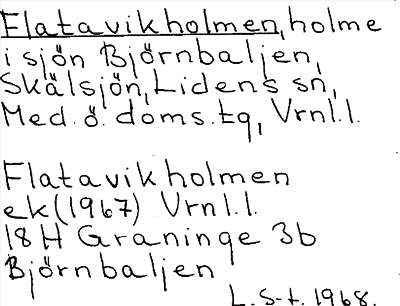 Flatavikholmen, holme
i sjön Björnbaljen,
Skälsjön, Lidens sn,
Med. ö. doms. tg, Vrnl.l.
Flatavikholmen
ek (1967) Vrnl.l.
18H Graninge 3b
Björnbaljen
L. S-t. 1968.